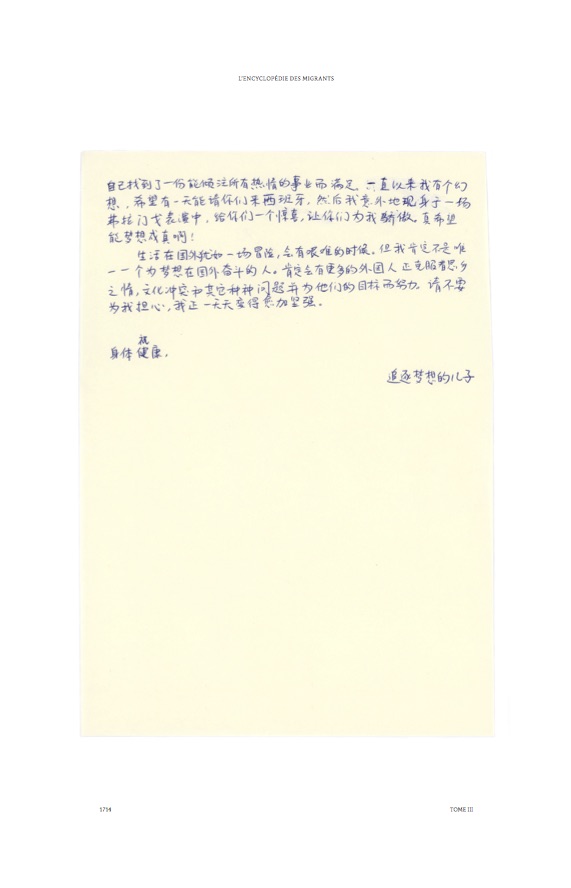 L'ENCYCLOPÉDIE DES MIGRANTS
自己找到了一份能倾注所有热情的事业而满足。一直以来我有个幻
想，希望有一天能请你们来西班牙，然后我意外地现身于一场
弗拉门戈表演中，给你们一个惊喜，让你们为我骄傲。真希望
能梦想成真啊！
生活在国外犹如一场冒险，会有艰难的时候。但我肯定不是唯
一一个为梦想在国外奋斗的人。肯定会有更多的外国人正克服着思乡
之情，文化冲突和其它种种问题并为他们的目标而努力。请不要
为我担心，我正一天天变得愈加坚强。
祝
身体健康，
追逐梦想的儿子
1714
TOME III